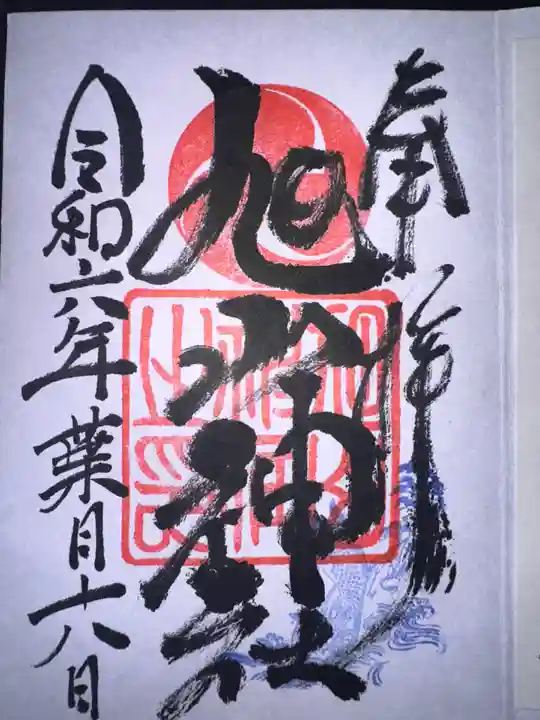 奉拝
旭水神社
令和六年葉月十八日